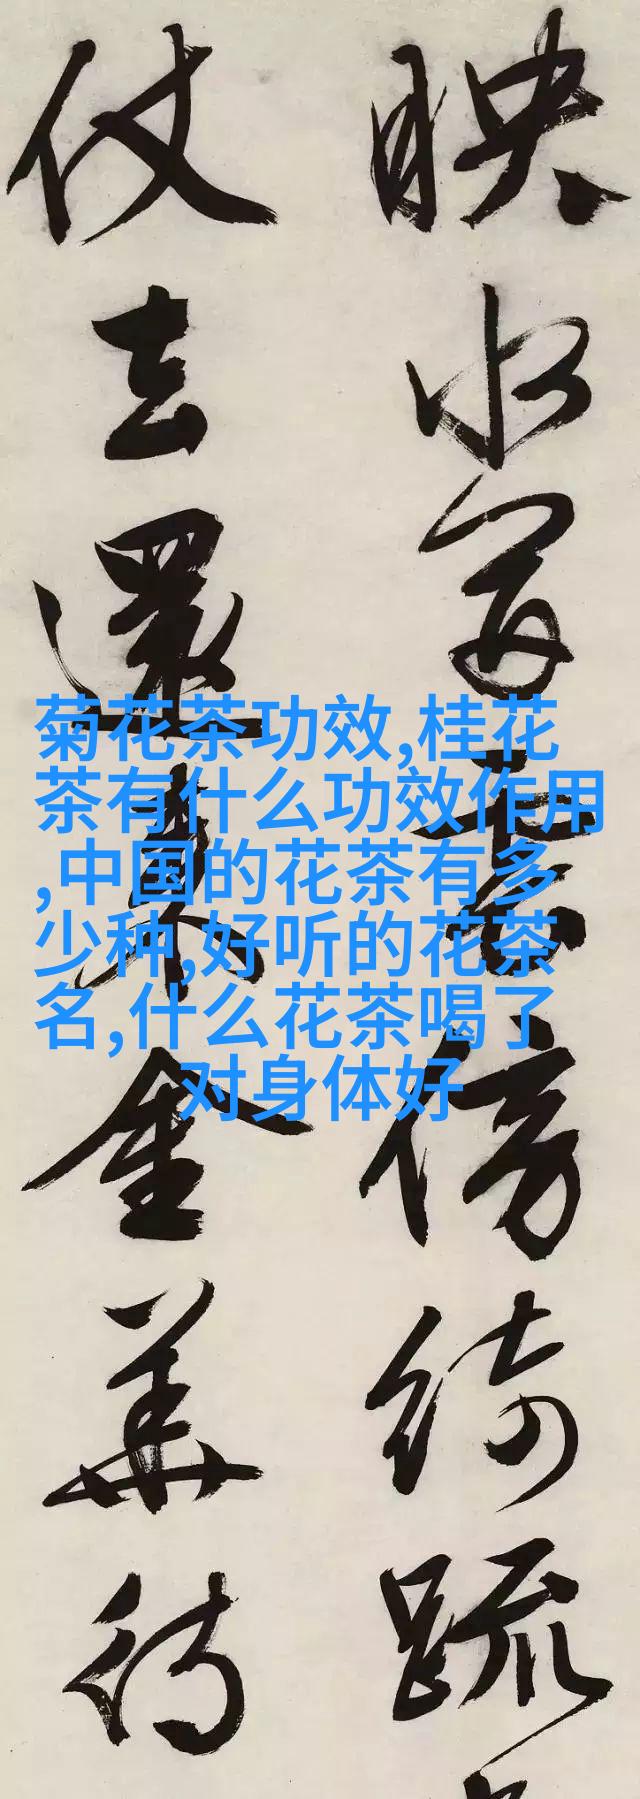 菊花茶功效,桂花
茶有什么功效作用
,中国的花茶有多
少种,好听的花茶
名,什么花茶喝了
对身体好
映水雲倍綺疏
仗去還來金華待